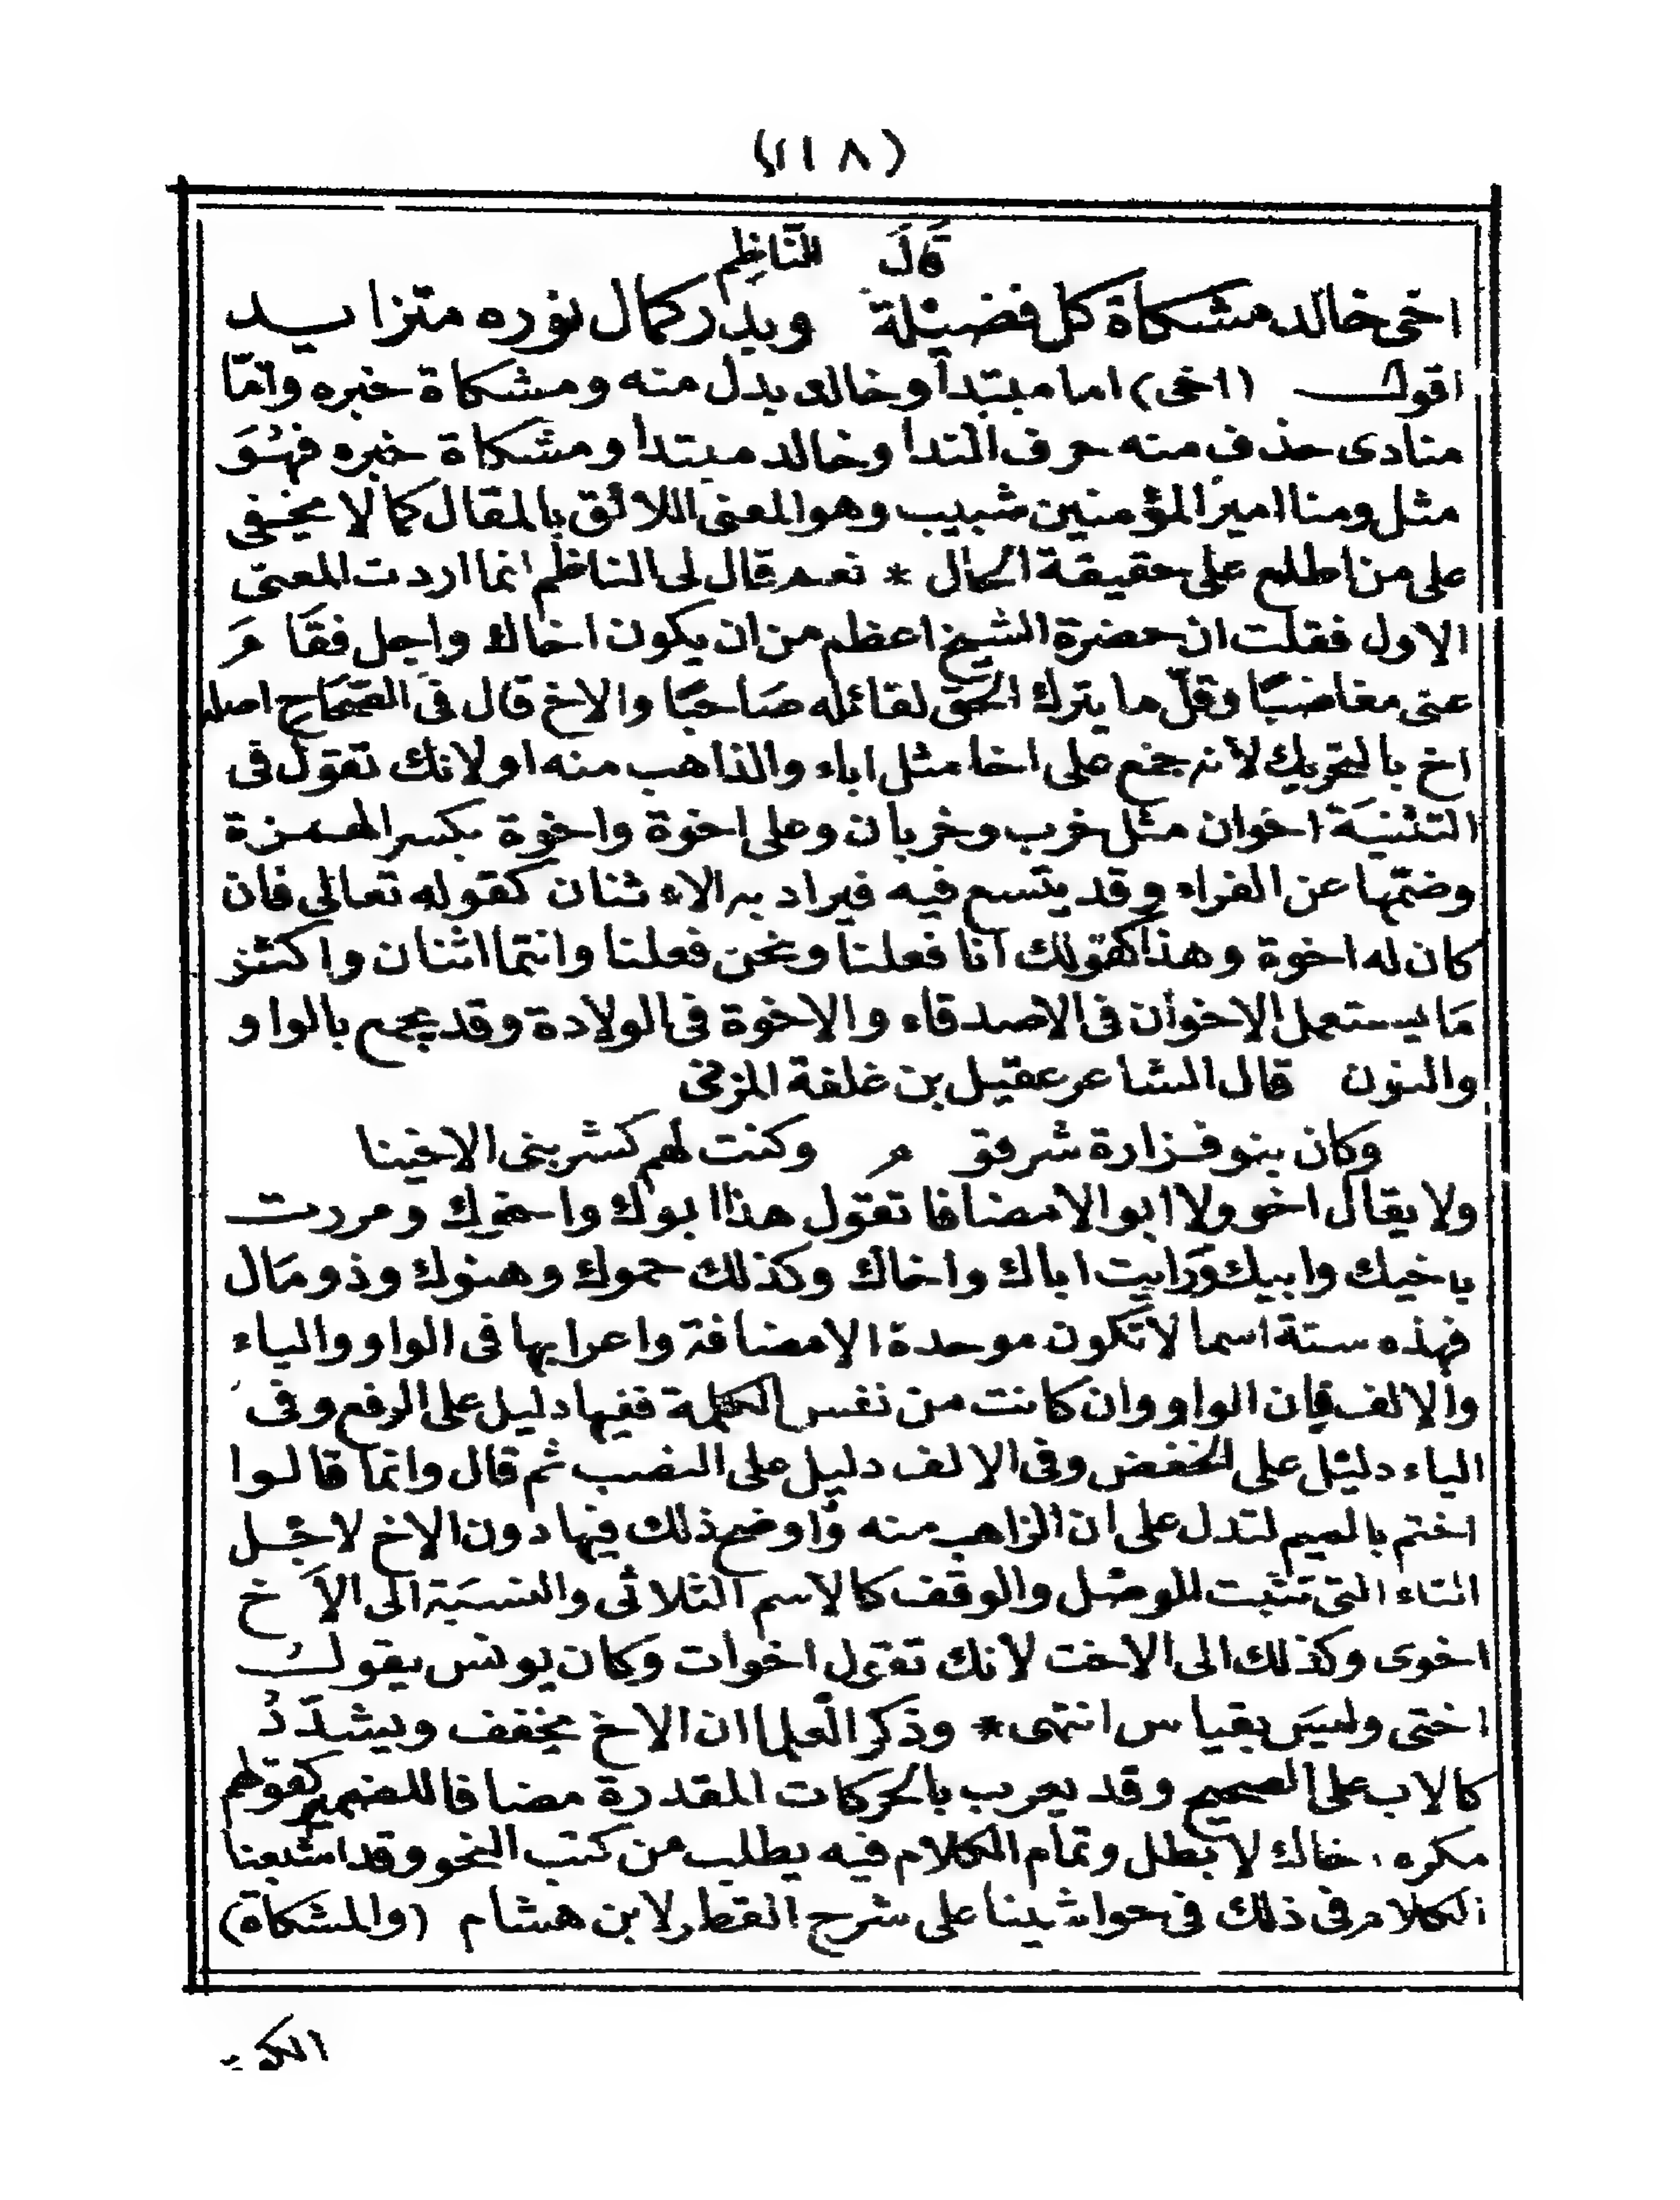 (١١٨)
قَالَ النَّاظِم
اخى خالد مشكاة كل فضيلة وبدر كمال نوره متزايد
اقول (اخى) اما مبتدأ وخالد بدل منه ومشكاة خبره وامّا
منادى حذف منه حرف الندا وخالد مبتدا ومشكاة خبره فهُوَ
مثل ومنا امير المؤمنين شبيب وهو المعنى اللائق بالمقال كما لا يخفى
على من اطلع على حقيقة الحال * نعم قال لى الناظم انما اردت المعنى
الاول فقلت ان حضرة الشيخ اعظم من ان يكون اخاك واجل فقَامَ
عنى مغاضبًا وقلّ ما يترك الحَق لقائله صَاحبًا والاخ قال فى الصّحَاح اصله
اخ بالتحريك لأنه جمع على اخا مثل اباء والذاهب منه او لانك تقول فى
التثنيَة اخوان مثل خرب وخربان وعلى اخوة واخوة بكسر الهمزة
وضمّها عن الفراء وقد يتسع فيه فيراد به الاء ثنان كقوله تعالى فان
كان له اخوة وهذا كقولك انا فعلنا ونحن فعلنا وانتما اثنان واكثر
مَا يستعمل الاخوان فى الاصدقاء والاخوة فى الولادة وقد يجمع بالواو
والنون قال الشاعر عقيل بن غلفة المزنى
وكان بنو فزارة شرقوم وكنت لهم كشر بنى الاخينا
ولا يقال اخو ولا ابو الا مضافا تقول هذا ابوك واخوك ومررت
باخيك وابيك ورَايت اباك واخاك وكذلك حموك وهنوك وذو مَال
فهذه ستة اسما لا تكون موحدة الا مضافة واعرابها فى الواو والياء
والالف فان الواو وان كانت من نفس الكلمة ففيها دليل على الرفع وفى
الياء دليل على الخفض وفى الالف دليل على النصب ثم قال وانما قالوا
اختم بالميم لتدل على ان الزاهب منه وَاوضح ذلك فيها دون الاخ لاجل
التاء التى تثبت للوصل والوقف كالاسم الثلاثى والنسبَة الى الاَخ
اخوى وكذلك الى الاخت لانك تقول اخوات وكان يونس يقول
اختى وليسَ بقياس انتهى * وذكر العلما ان الاخ يخفف ويشدّدُ
كالاب على الصحيح وقد يعرب بالحركات المقدرة مضافا للضمير كقولهم
مكره اخاك لا بطل وتمام الكلام فيه يطلب من كتب النحو وقد اشبعنا
الكلام فى ذلك فى حواشينا على شرح القطر لابن هشام (والمشكاة)